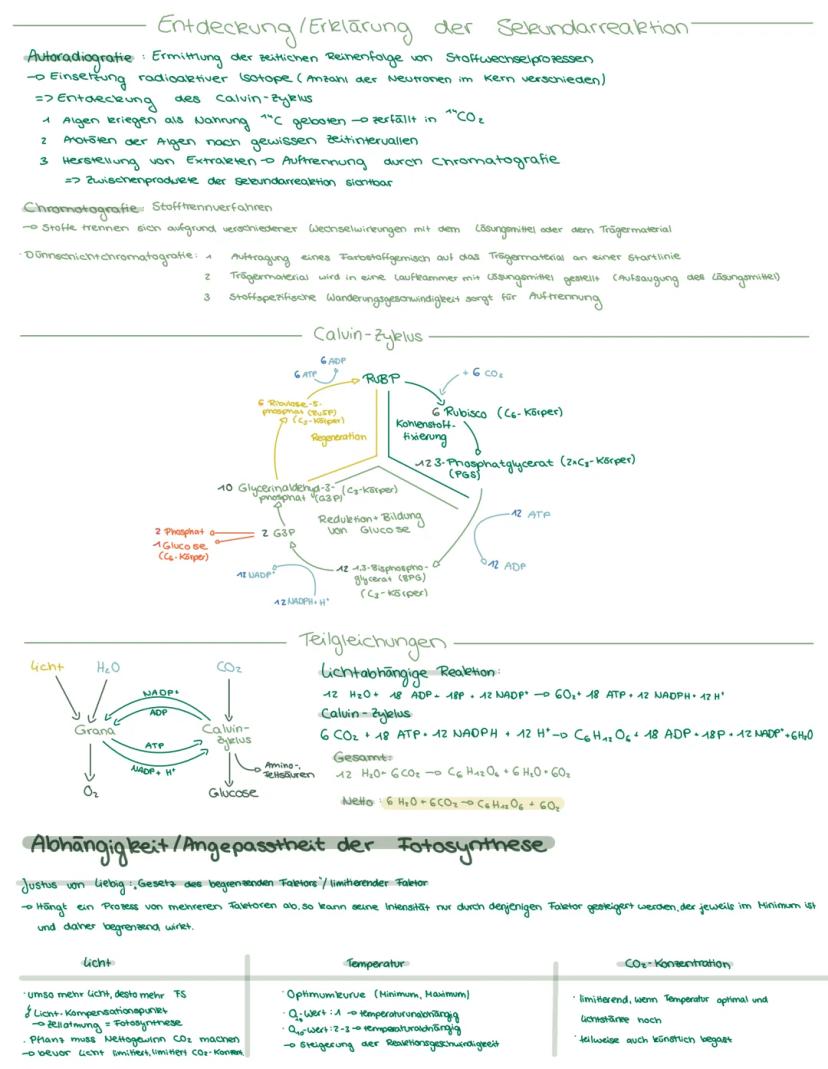 Entdeckung/Erklärung der Sekundarreaktion
Autoradiografie : Ermittlung der zeitlichen Reihenfolge von Stoffwechselprozessen
→ Einsetzung radioaktiver Isotope (Anzahl der Neutronen im Kern verschieden)
=> Entdeckung des Calvin-Zyklus
1 Algen kriegen als Nahrung ¹⁴C geboten → zerfällt in ¹⁴CO₂
2 Abtöten der Algen nach gewissen Zeitintervallen
3 Herstellung von Extrakten → Auftrennung durch Chromatografie
=> Zwischenprodukte der Sekundarreaktion sichtbar
Chromotografie: Stofftrennverfahren
→ Stoffe trennen sich aufgrund verschiedener Wechselwirkungen mit dem Lösungsmittel oder dem Trägermaterial
· Dünnschichtchromatografie: 1 Auftragung eines Farbstoffgemisch auf das Trägermaterial an einer Startlinie
2 Trägermaterial wird in eine Laufkammer mit Lösungsmittel gestellt (Aufsaugung des Lösungsmittel)
3 Stoffspezifische Wanderungsgeschwindigkeit sorgt für Auftrennung
Calvin-Zyklus
6 ADP
6 ATP
RuBP
+ 6 CO₂
6 Ribulose-5-
phosphat (RuSP)
(C₅-Körper)
6 Rubisco (C₆-Körper)
Kohlenstoff-
fixierung
Regeneration
12 3-Phosphatglycerat (2×C₃-Körper)
(PGS)
10 Glycerinaldehyd-3- (C₃-Körper)
phosphat (G3P)
Reduktion + Bildung
von Glucose
12 ATP
2 Phosphat
1 Glucose
(C₆-Körper)
2 G3P
12 ADP
12 NADP⁺
12 1,3-Bisphospho-
glycerat (BPG)
(C₃-Körper)
12 NADPH+H⁺
Teilgleichungen
Licht H₂O CO₂
NADP⁺
ADP
Grana
Calvin-
Zyklus
ATP
NADP+ H⁺
Amino-,
Fettsäuren
O₂
Glucose
Lichtabhängige Reaktion:
12 H₂O + 18 ADP + 18P + 12 NADP⁺ → 6O₂ + 18 ATP + 12 NADPH + 12 H⁺
Calvin-Zyklus
6 CO₂ + 18 ATP + 12 NADPH + 12 H⁺ → C₆H₁₂O₆ + 18 ADP + 18P + 12 NADP⁺ + 6H₂O
Gesamt:
12 H₂O + 6CO₂ → C₆H₁₂O₆ + 6 H₂O + 6O₂
Netto : 6 H₂O + 6CO₂ → C₆H₁₂O₆ + 6O₂
Abhängigkeit/Angepasstheit der Fotosynthese
Justus von Liebig: „Gesetz des begrenzenden Faktors“/limitierender Faktor
→ Hängt ein Prozess von mehreren Faktoren ab, so kann seine Intensität nur durch denjenigen Faktor gesteigert werden, der jeweils im Minimum ist
und daher begrenzend wirkt.
Licht
· umso mehr Licht, desto mehr FS
Licht-Kompensationspunkt
→ Zellatmung = Fotosynthese
· Pflanz muss Nettogewinn CO₂ machen
→ bevor Licht limitiert, limitiert CO₂-Konzent.
Temperatur
· Optimumkurve (Minimum, Maximum)
· Q₁₀-Wert: 1 → temperaturunabhängig
· Q₁₀-Wert: 2-3 → temperaturabhängig
→ Steigerung der Reaktionsgeschwindigkeit
CO₂-Konzentration
· limitierend, wenn Temperatur optimal und
Lichtstärke hoch
· teilweise auch künstlich begast